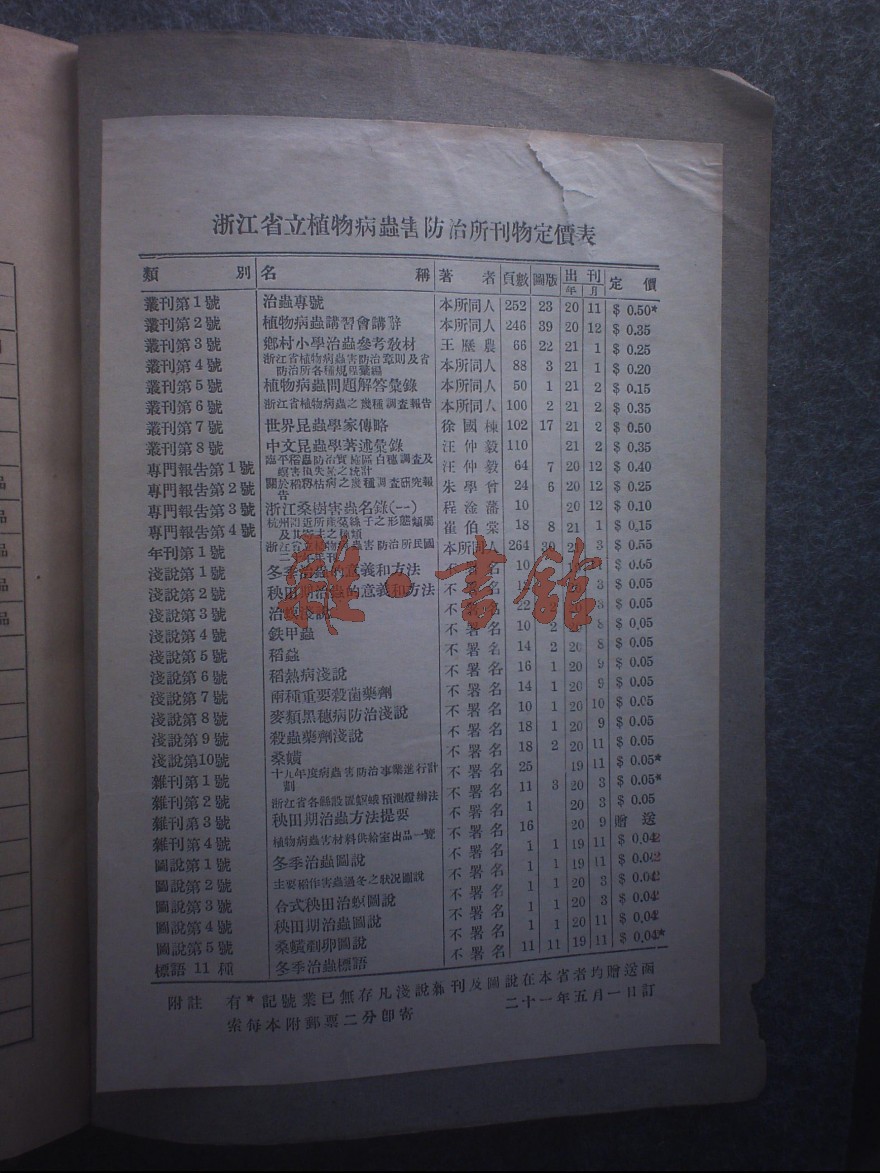 浙江省立植物病蟲害防治所刊物定價表
類別 名稱 著者 頁數 圖版 出刊 定價
年 月
叢刊第1號 治蟲專號 本所同人 252 23 20 11 $ 0.50*
叢刊第2號 植物病蟲講習會講辭 本所同人 246 39 20 12 $ 0.35
叢刊第3號 鄉村小學治蟲參考教材 王歷農 66 22 21 1 $ 0.25
叢刊第4號 浙江省植物病蟲害防治章則及省
防治所各種規程彙編 本所同人 88 3 21 1 $ 0.20
叢刊第5號 植物病蟲問題解答彙錄 本所同人 50 1 21 2 $ 0.15
叢刊第6號 浙江省植物病蟲之幾種調查報告 本所同人 100 2 21 2 $ 0.35
叢刊第7號 世界昆蟲學家傳略 徐國棟 102 17 21 2 $ 0.50
叢刊第8號 中文昆蟲學著述彙錄 汪仲毅 110 21 2 $ 0.35
專門報告第1號 臨平稻蟲防治實施區白穗調查及
損害損失第之統計 汪仲毅 64 7 20 12 $ 0.40
專門報告第2號 關於稻蒋枯病之幾種調查研究報
告 朱學曾 24 6 20 12 $ 0.25
專門報告第3號 浙江桑樹害蟲名錄(一) 程淦藩 10 20 12 $ 0.10
專門報告第4號 杭州附近所產 子之形態類屬
及其寄主之種類 崔伯棠 18 8 21 1 $ 0.15
年刊第1號 浙江省立植物病蟲害防治所民國
二十年年刊 本所同人 264 3 $ 0.55
淺說第1號 冬季治蟲的意義和方法 不署名 10 $ 0.05
淺說第2號 秧田期治蟲的意義和方法 不署名 3 $ 0.05
淺說第3號 治螟淺說 不署名 22 3 $ 0.05
淺說第4號 鉄甲蟲 不署名 10 2 8 $ 0.05
淺說第5號 稻蝨 不署名 14 2 20 8 $ 0.05
淺說第6號 稻熱病淺說 不署名 16 1 20 9 $ 0.05
淺說第7號 兩種重要殺菌藥劑 不署名 14 1 20 9 $ 0.05
淺說第8號 麥類黑穗病防治淺說 不署名 10 1 20 10 $ 0.05
淺說第9號 殺蟲藥劑淺說 不署名 18 1 20 9 $ 0.05
淺說第10號 桑蟥 不署名 18 2 20 11 $ 0.05
雜刊第1號 十九年度病蟲害防治事業進行計
劃 不署名 25 19 11 $ 0.05*
雜刊第2號 浙江省各縣設置螟蛾預測燈辦法 不署名 11 3 20 3 $ 0.05*
雜刊第3號 秧田期治蟲方法提要 不署名 1 20 3 $ 0.05
雜刊第4號 植物病蟲害材料供給室出品一覽 不署名 16 20 9 贈送
圖說第1號 冬季治蟲圖說 不署名 1 1 19 11 $ 0.04
圖說第2號 主要稻作害蟲過冬之狀況圖說 不署名 1 1 19 11 $ 0.04
圖說第3號 合式秧田治螟圖說 不署名 1 1 20 3 $ 0.04
圖說第4號 秧田期治蟲圖說 不署名 1 1 20 3 $ 0.04
圖說第5號 桑蟥剷卵圖說 不署名 1 1 20 11 $ 0.04
標語11種 冬季治蟲標語 不署名 11 11 19 11 $ 0.04*
附註 有*記號業已無存凡淺說雜刊及圖說在本省者均贈送函
索每本附郵票二分卽寄 二十一年五月一日訂
雜·書館